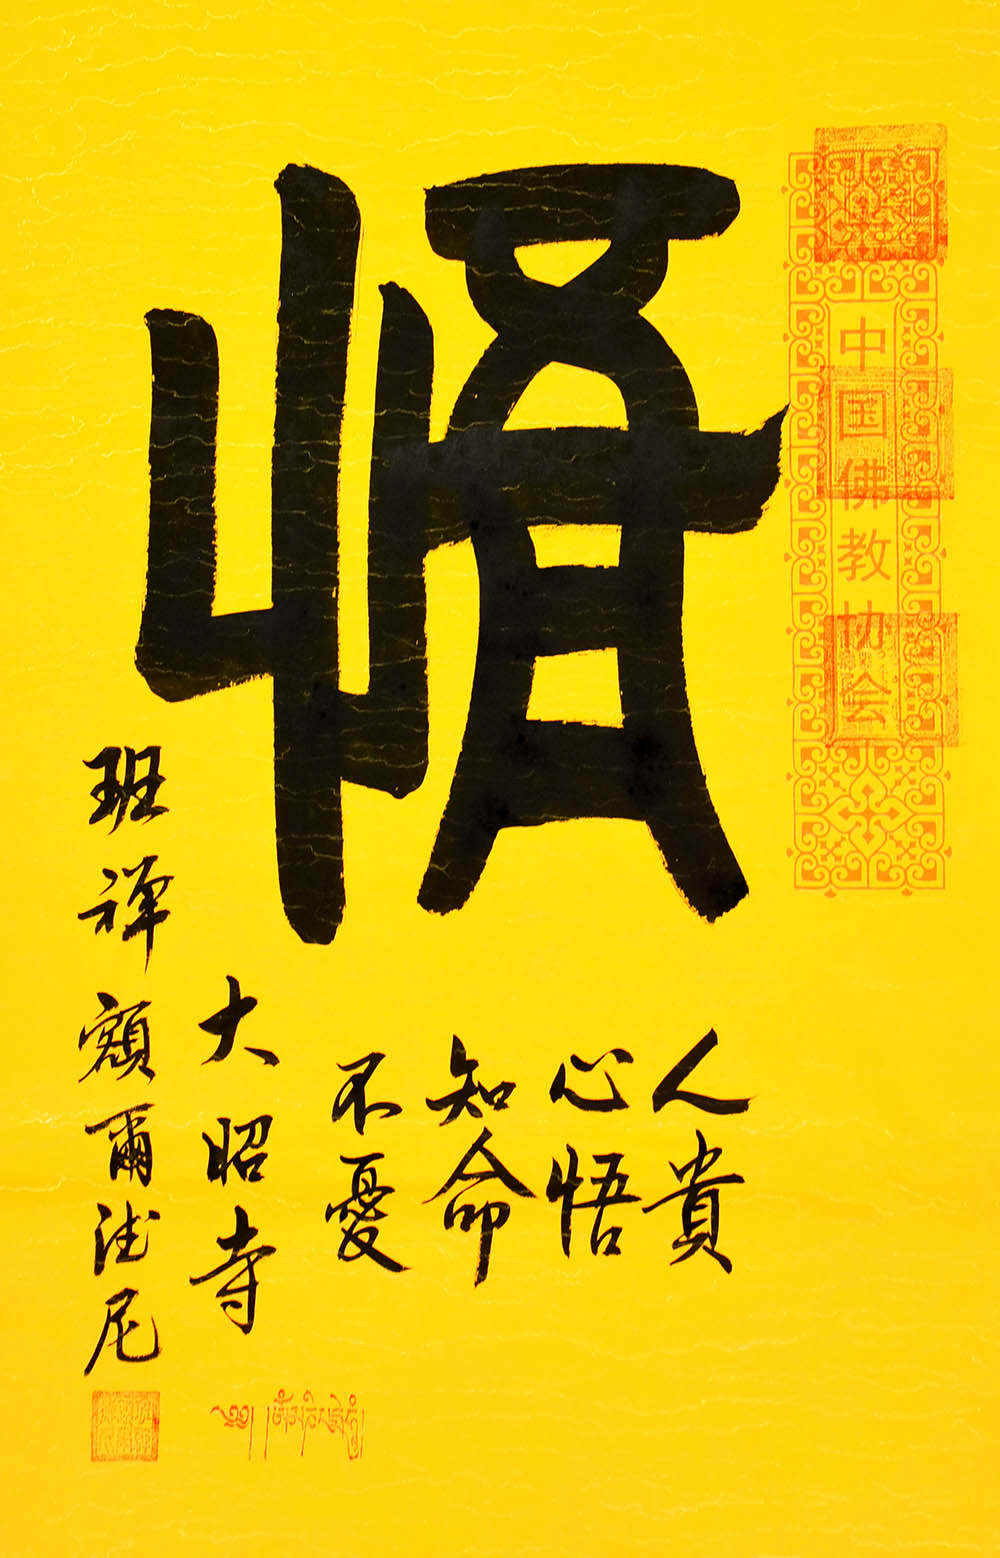 中国佛教协会
悟
人貴
心悟
知命
不憂
大昭寺
班禅額爾德尼